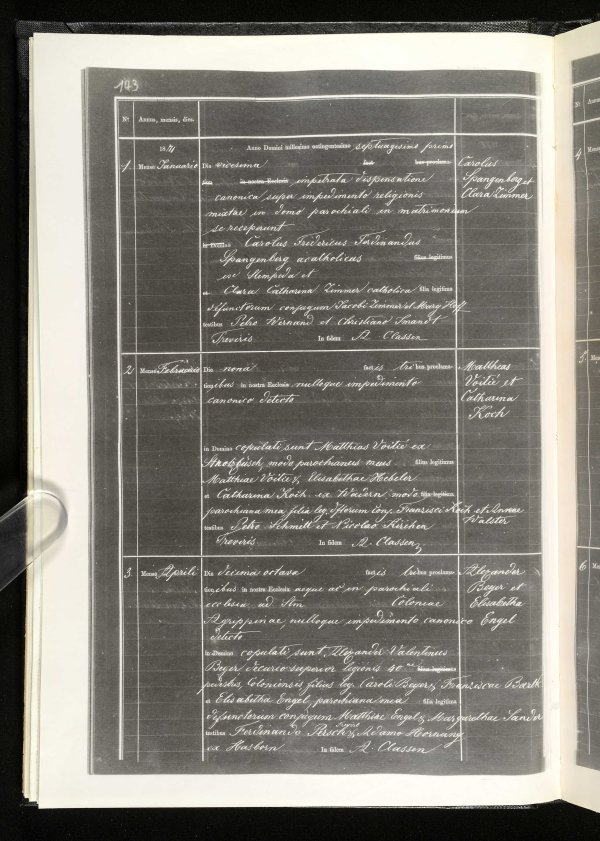 143
Nr. Annus, mensis, dies.
1871 Anno Domini millesimo octingentesimo septuagesimo primo
1. Mense Januario Die vicesima factis bus proclama- Carolus
tion in nostra Ecclesia, impetrata dispensatione Spangenberg et
canonica super impedimento religionis Clara Zimmer
mixtae in domo parochiali in matrimonium
se receperunt
in Domino Carolus Fridericus Ferdinandus
Spangenberg acatholicus filius legitimus
ex Stempeda et
et Clara Catharina Zimmer catholica filia legitima
defunctorum conjugum Jacobi Zimmer et Mary Hoff
testibus Petro Wernand et Christiano Smandt
Treveris In fidem A. Classen
2. Mense Februario Die nona factis tribus proclama- Matthias
tionibus in nostra Ecclesia nulloque impedimento Voitié et
canonico detecto Catharina
Koch
in Domino copulati sunt Matthias Voitié ex
modo parochianus meus filius legitimus
Matthiae Voitié & Elisabethae Hebeler
et Catharina Koch ex Wadern modo filia legitima
parochiana mea filia leg. dftorum conj. Francisci Koch et Annae
testibus Petro Schmitt et Nicolao Kirchen Walster
Treveris In fidem A. Classen
3. Mense Aprili Die decima octava factis tribus proclama- Alexander
tionibus in nostra Ecclesia aeque ac in parochiali Beyer et
ecclesia ad Stm Coloniae Elisabetha
Agrippinae nulloque impedimento canonico Engel
detecto
in Domino copulati sunt, Alexander Valentinus
Beyer decurio superior legionis 40 filius legitimus
pedestris, Coloniensis filius leg. Caroli Beyer & Franziscae Barth
et Elisabetha Engel, parochiana mea filia legitima
defunctorum conjugum Matthiae Engel & Margarethae Sander
testibus Ferdinando Persch & Adamo Hornung
ex Hasborn In fidem A. Classen
Nr. Annus
4.
5.
6